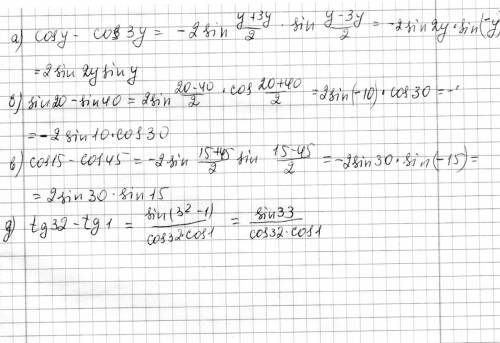 а) cosy - cos3y = -2sin (y+3y)/2 · sin (y-3y)/2 = -2sin2y·sin(-y)
=2sin2ysiny
б) sin20-sin40 = 2sin (20-40)/2 · cos (20+40)/2 = 2sin(-10)·cos30 =
= -2sin10·cos30
в) cos15-cos45 = -2sin (15+45)/2 sin (15-45)/2 = -2sin30·sin(-15) =
= 2sin30·sin15
д) tg32-tg1 = sin(32-1)/cos32·cos1 = sin33/cos32·cos1